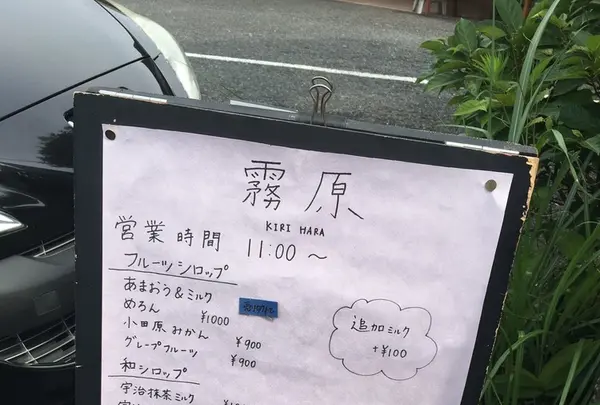 霧原
KIRI HARA
営業時間 11:00～
フルーツシロップ
あまおう&ミルク
めろん ¥1000
小田原みかん ¥900
グレープフルーツ ¥900
和シロップ
宇治抹茶ミルク
追加ミルク
+¥100